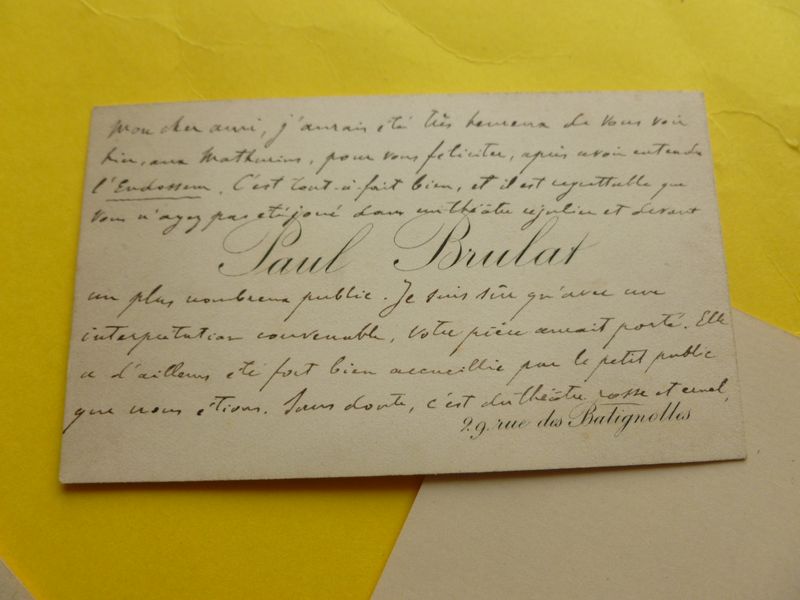 Mon cher ami, j'aurais été très heureux de vous voir
hier, aux Mathurins, pour vous féliciter, après avoir entendu
l'Endosseur. C'est tout-à-fait bien, et il est regrettable que
vous n'ayez pas été joué dans un théâtre régulier et devant
Paul Brulat
un plus nombreux public. Je suis sûr qu'avec une
interprétation convenable, votre pièce aurait porté. Elle
a d'ailleurs été fort bien accueillie par le petit public
que nous étions. Sans doute, c'est du théâtre rosse et cruel,
29, rue des Batignolles